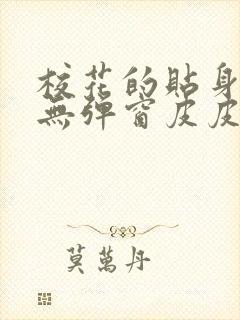 校花的貼身
無彈窗皮皮
莫萬丹